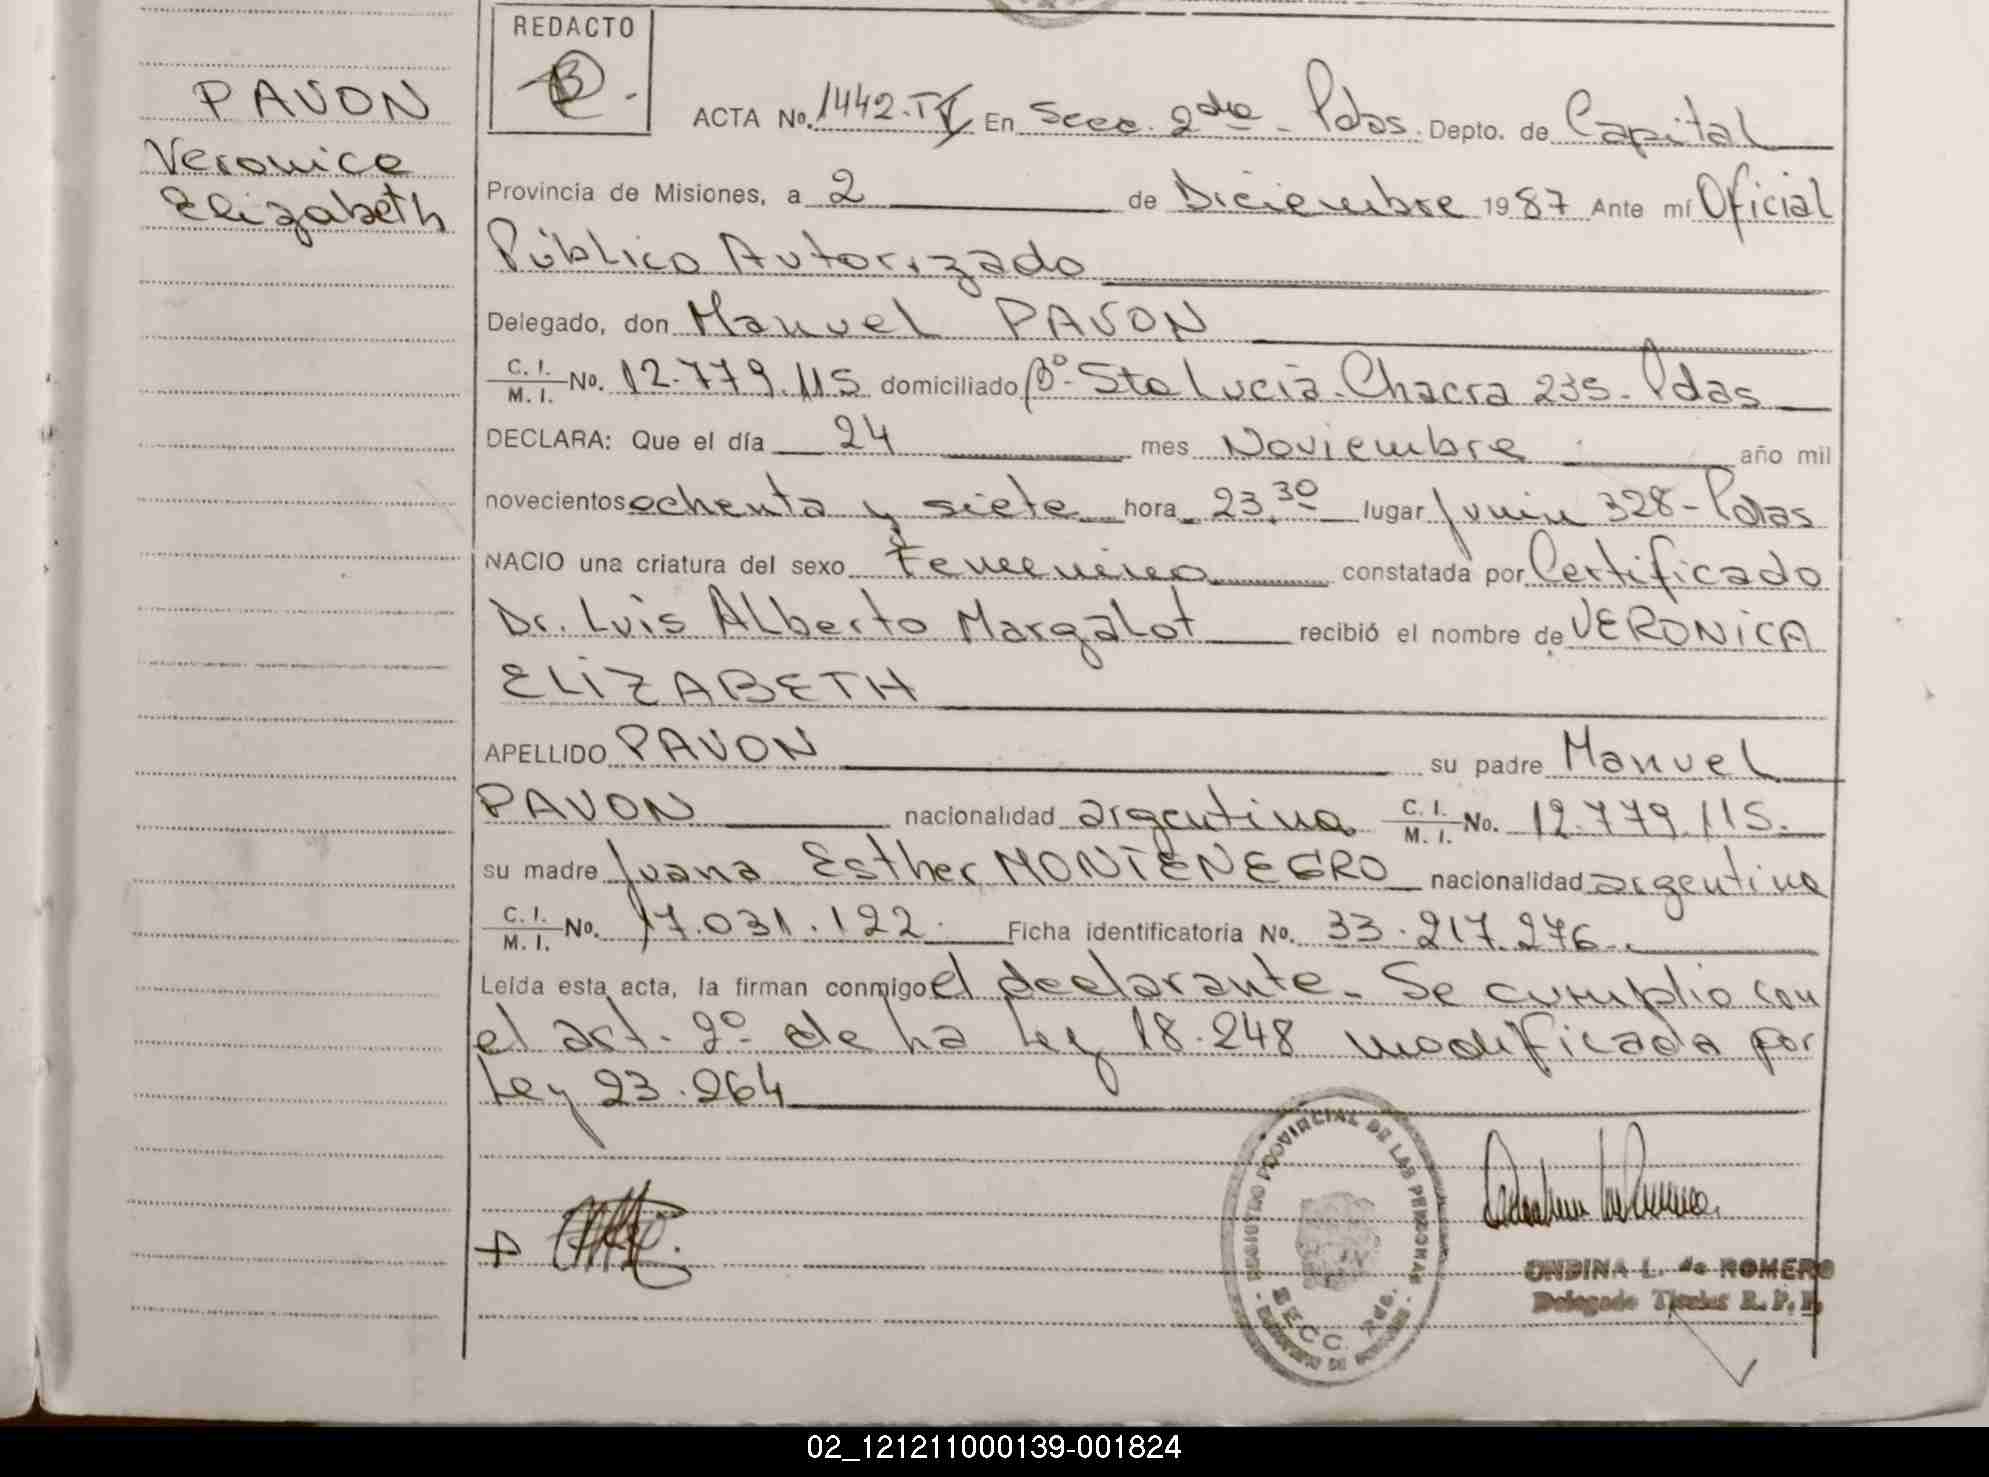 PAVON
Veronica
Elizabeth
REDACTO
ACTA No. 1442.TV En Secc. 2da - Pdas. Depto. de Capital
Provincia de Misiones, a 2 de Diciembre 1987 Ante mí Oficial
Público Autorizado
Delegado, don Manuel PAVON
C. I. / M. I. No. 12.779.115 domiciliado Bº- Sta Lucia - Chacra 235 - Pdas
DECLARA: Que el día 24 mes Noviembre año mil
novecientos ochenta y siete hora 23,30 lugar Junin 328 - Pdas
NACIO una criatura del sexo Femenino constatada por Certificado
Dr. Luis Alberto Margalot recibió el nombre de VERONICA
ELIZABETH
APELLIDO PAVON su padre Manuel
PAVON nacionalidad argentina C. I. / M. I. No. 12.779.115.
su madre Juana Esther MONTENEGRO nacionalidad argentina
C. I. / M. I. No. 17.031.122. Ficha identificatoria No. 33.217.276.
Leída esta acta, la firman conmigo el declarante. Se cumplio con
el art. 2º de la Ley 18.248 modificada por
Ley 23.264
REGISTRO PROVINCIAL DE LAS PERSONAS
SECC. 2da.
ONDINA L. de ROMERO
Delegado Titular R. P. P.
02_121211000139-001824